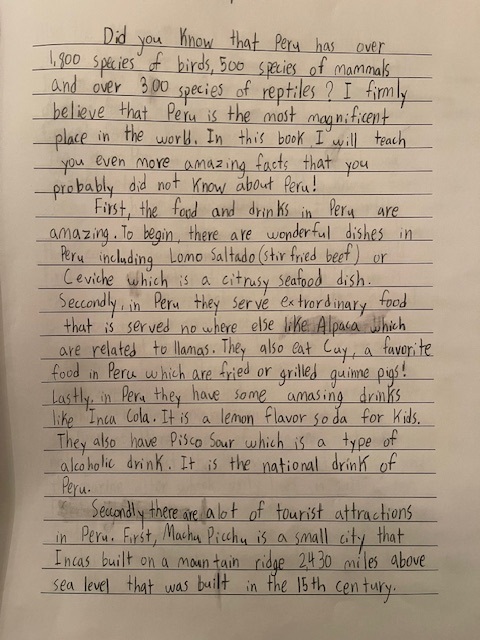 Did you know that Peru has over
1,800 species of birds, 500 species of mammals
and over 300 species of reptiles? I firmly
believe that Peru is the most magnificent
place in the world. In this book I will teach
you even more amazing facts that you
probably did not know about Peru!
First, the food and drinks in Peru are
amazing. To begin, there are wonderful dishes in
Peru including Lomo Saltado (stir fried beef) or
Ceviche which is a citrusy seafood dish.
Seccondly, in Peru they serve extrordinary food
that is served no where else like Alpaca which
are related to llamas. They also eat Cuy, a favorite
food in Peru which are fried or grilled guinne pigs!
Lastly, in Peru they have some amasing drinks
like Inca Cola. It is a lemon flavor soda for kids.
They also have Pisco Sour which is a type of
alcoholic drink. It is the national drink of
Peru.
Seccondly there are alot of tourist attractions
in Peru. First, Machu Picchu is a small city that
Incas built on a mountain ridge 2430 miles above
sea level that was built in the 15th century.